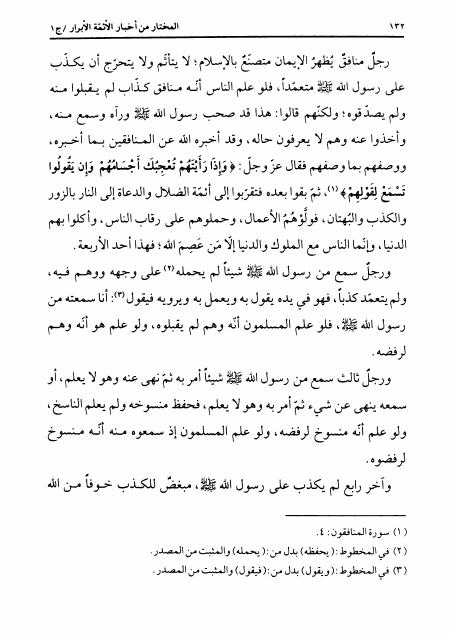 ١٣٢ المختار من أخبار الأئمّة الأبرار / ج١
رجلٌ منافقٌ يُظهرُ الإيمان متصنّعٌ بالإسلام؛ لا يتأثّم ولا يتحرّج أن يكذب
على رسول الله ﷺ متعمّداً، فلو علم الناس أنّه منافق كذّاب لم يقبلوا منه
ولم يصدّقوه؛ ولكنّهم قالوا: هذا قد صحب رسول الله ﷺ ورآه وسمع منه،
وأخذوا عنه وهم لا يعرفون حاله، وقد أخبره الله عن المنافقين بما أخبره،
ووصفهم بما وصفهم فقال عزّ وجلّ: ﴿وَإِذَا رَأَيْتَهُمْ تُعْجِبُكَ أَجْسَامُهُمْ وَإِن يَقُولُوا
تَسْمَعْ لِقَوْلِهِمْ﴾(١)، ثمّ بقوا بعده فتقرّبوا إلى أئمّة الضلال والدعاة إلى النار بالزور
والكذب والبُهتان، فولَّوْهُمُ الأعمال، وحملوهم على رقاب الناس، وأكلوا بهم
الدنيا، وإنّما الناس مع الملوك والدنيا إلّا مَن عَصِمَ الله؛ فهذا أحد الأربعة.
ورجلٌ سمع من رسول الله ﷺ شيئاً لم يحمله(٢) على وجهه ووهم فيه،
ولم يتعمّد كذباً، فهو في يده يقول به ويعمل به ويرويه فيقول(٣): أنا سمعته من
رسول الله ﷺ، فلو علم المسلمون أنّه وهم لم يقبلوه، ولو علم هو أنّه وهم
لرفضه.
ورجلٌ ثالث سمع من رسول الله ﷺ شيئاً أمر به ثمّ نهى عنه وهو لا يعلم، أو
سمعه ينهى عن شيء ثمّ أمر به وهو لا يعلم، فحفظ منسوخه ولم يعلم الناسخ،
ولو علم أنّه منسوخ لرفضه، ولو علم المسلمون إذ سمعوه منه أنّه منسوخ
لرفضوه.
وآخر رابع لم يكذب على رسول الله ﷺ، مبغضٌ للكذب خوفاً من الله
(١) سورة المنافقون: ٤.
(٢) في المخطوط: (يحفظه) بدل من: (يحمله) والمثبت من المصدر.
(٣) في المخطوط: (ويقول) بدل من: (فيقول) والمثبت من المصدر.